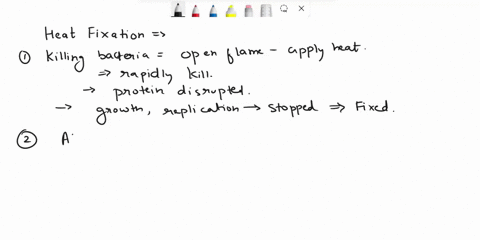 Heat Fixation =>
① Killing bacteria = open flame - apply heat.
=> rapidly kill.
→ protein disrupted.
→ growth, replication → stopped => Fixed.
② A